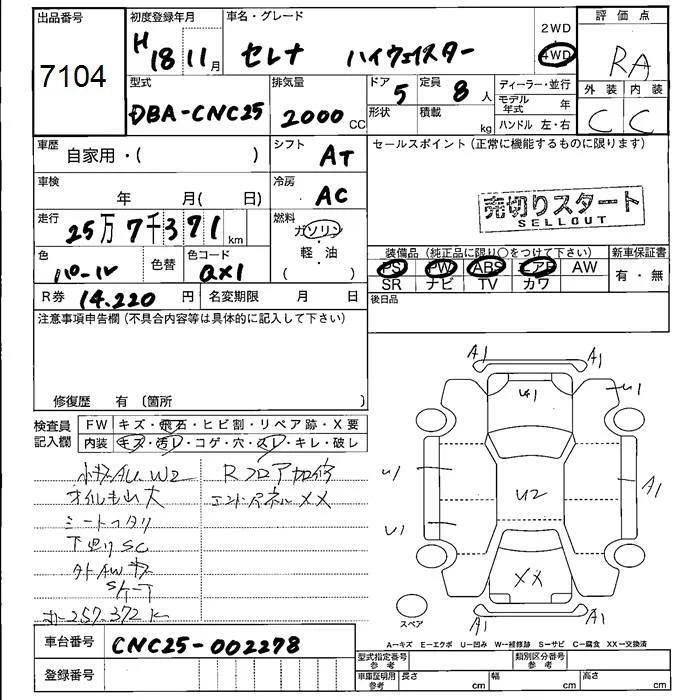 出品番号 初度登録年月 車名・グレード 2WD 評価点
7104 H18 11月 セレナ ハイウェイスター 4WD RA
型式 排気量 ドア 定員 ディーラー・並行 外装 内装
DBA-CNC25 2000CC 5 8人 モデル年式 年 C C
形状 積載 kg ハンドル 左・右
車歴 自家用・( ) シフト AT セールスポイント(正常に機能するものに限ります)
車検 年 月( 日) 冷房 AC
売切りスタート
SELLOUT
走行 25万7千371km 燃料 ガソリン・軽・油
装備品(純正品に限り○をつけて下さい) 新車保証書
色 パール 色替 色コード QX1
PS PW ABS エアB AW 有・無
SR ナビ TV カワ
R券 14.220円 名変期限 月 日 後日品
注意事項申告欄(不具合内容等は具体的に記入して下さい)
修復歴 有〔箇所 〕
検査員記入欄 FW キズ・飛石・ヒビ割・リペア跡・X要
内装 キズ・汚レ・コゲ・穴・スレ・キレ・破レ
小キズAU W2 Rフロア加修
オイルもれ大 エンドパネルXX
シートヘタリ
下廻りSC
外AWキズ
257.372
車台番号 CNC25-002278
登録番号
A1 A1
U1 U1
U1 U2 A1
U1
XX
スペア A1 A1
A=キズ E=エクボ U=凹み W=補修跡 S=サビ C=腐食 XX=交換済
型式指定番号 参考 類別区分番号 参考
車庫証明用 参考 長さ cm 幅 cm 高さ cm